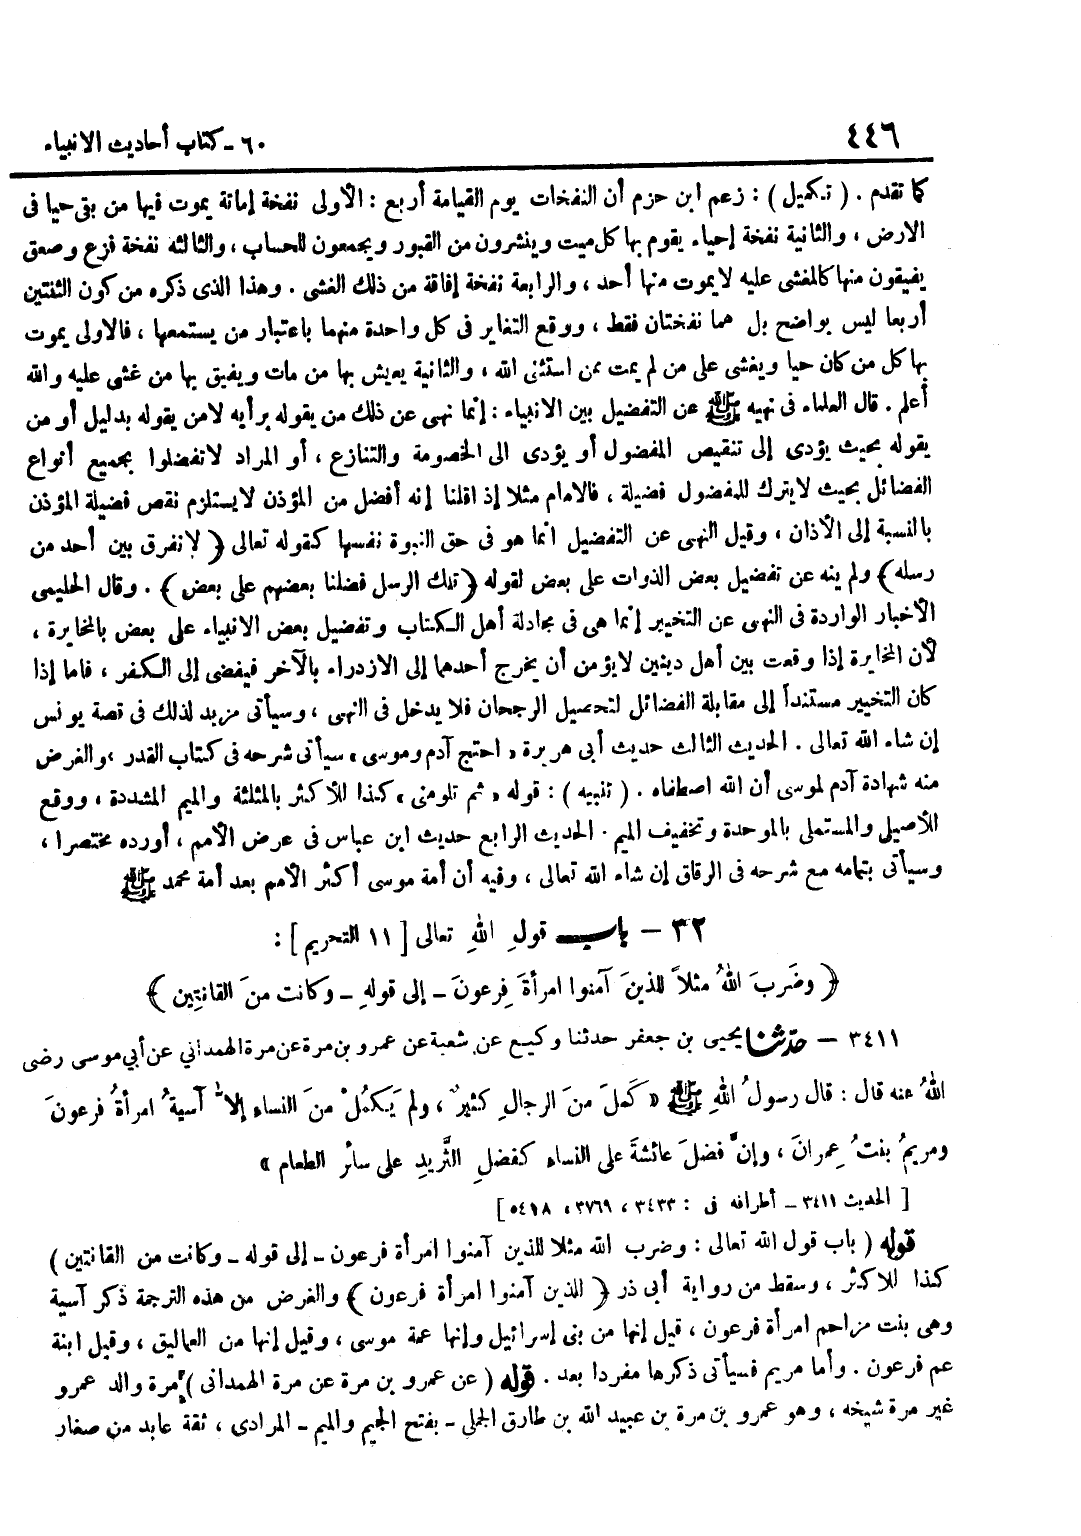 ٤٤٦ ٦٠ - كتاب أحاديث الانبياء
كما تقدم . ( تكميل ) : زعم ابن حزم أن النفخات يوم القيامة أربع : الأولى نفخة إماتة يموت فيها من بقى حيا فى
الارض ، والثانية نفخة إحياء يقوم بها كل ميت وينشرون من القبور ويجمعون للحساب ، والثالثة نفخة فزع وصعق
يفيقون منها كالمغشى عليه لا يموت منها أحد ، والرابعة نفخة إفاقة من ذلك الغشى . وهذا الذى ذكره من كون الثنتين
أربعا ليس بواضح بل هما نفختان فقط ، ووقع التغاير فى كل واحدة منهما باعتبار من يستمعها ، فالاولى يموت
بها كل من كان حيا ويغشى على من لم يمت ممن استثنى الله ، والثانية يعيش بها من مات ويفيق بها من غشى عليه والله
أعلم . قال العلماء فى نهيه ﷺ عن التفضيل بين الانبياء : إنما نهى عن ذلك من يقوله برأيه لا من يقوله بدليل أو من
يقوله بحيث يؤدى إلى تنقيص المفضول أو يؤدى الى الخصومة والتنازع ، أو المراد لا تفضلوا بجميع أنواع
الفضائل بحيث لا يترك للمفضول فضيلة ، فالامام مثلا إذ اقلنا إنه أفضل من المؤذن لا يستلزم نقص فضيلة المؤذن
بالنسبة إلى الأذان ، وقيل النهى عن التفضيل انما هو فى حق النبوة نفسها كقوله تعالى ﴿ لا نفرق بين أحد من
رسله ﴾ ولم ينه عن تفضيل بعض الذوات على بعض لقوله ﴿ تلك الرسل فضلنا بعضهم على بعض ﴾ . وقال الحليمى
الأخبار الواردة فى النهى عن التخيير إنما هى فى مجادلة أهل الكتاب وتفضيل بعض الانبياء على بعض بالمخايرة ،
لأن المخايرة إذا وقعت بين أهل دينين لا يؤمن أن يخرج أحدهما إلى الازدراء بالآخر فيفضى إلى الكفر ، فاما إذا
كان التخيير مستنداً إلى مقابلة الفضائل لتحصيل الرجحان فلا يدخل فى النهى ، وسيأتى مزيد لذلك فى قصة يونس
إن شاء الله تعالى . الحديث الثالث حديث أبى هريرة « احتج آدم وموسى » سيأتى شرحه فى كتاب القدر ، والغرض
منه شهادة آدم لموسى أن الله اصطفاه . ( تنبيه ) : قوله « ثم تلومنى » كذا للأكثر بالمثلثة والميم المشددة ، ووقع
للأصيلى والمستملى بالموحدة وتخفيف الميم . الحديث الرابع حديث ابن عباس فى عرض الأمم ، أورده مختصرا ،
وسيأتى بتمامه مع شرحه فى الرقاق إن شاء الله تعالى ، وفيه أن أمة موسى أكثر الأمم بعد أمة محمد ﷺ
٣٢ - باب قولِ اللهِ تعالى [ ١١ التحريم ] :
﴿ وضَربَ اللهُ مثلاً للذينَ آمنوا امرأةَ فِرعونَ - إلى قولهِ - وكانت منَ القانتِين ﴾
٣٤١١ - حدّثنا يحيى بن جعفر حدثنا وكيع عن شعبة عن عمرو بن مرة عن مرة الهمداني عن أبي موسى رضى
اللهُ عنه قال : قال رسولُ اللهِ ﷺ « كَملَ منَ الرجالِ كثيرٌ ، ولم يَكملْ منَ النساءِ إلاَّ آسيةُ امرأةُ فرعونَ
ومريمُ بنتُ عِمرانَ ، وإنَّ فضلَ عائشةَ على النساء كفضلِ الثَّريدِ على سائر الطعام »
[ الحديث ٣٤١١ - أطرافه فى : ٣٤٣٣ ، ٣٧٦٩ ، ٥٤١٨ ]
قوله ( باب قول الله تعالى : وضرب الله مثلا للذين آمنوا امرأة فرعون - إلى قوله - وكانت من القانتين )
كذا للاكثر ، وسقط من رواية أبى ذر ﴿ للذين آمنوا امرأة فرعون ﴾ والغرض من هذه الترجمة ذكر آسية
وهى بنت مزاحم امرأة فرعون ، قيل إنها من بنى إسرائيل وإنها عمة موسى ، وقيل إنها من العماليق ، وقيل ابنة
عم فرعون . وأما مريم فسيأتى ذكرها مفردا بعد . قوله ( عن عمرو بن مرة عن مرة الهمدانى ) مرة والد عمرو
غير مرة شيخه ، وهو عمرو بن مرة بن عبيد الله بن طارق الجملى - بفتح الجيم والميم - المرادى ، ثقة عابد من صغار